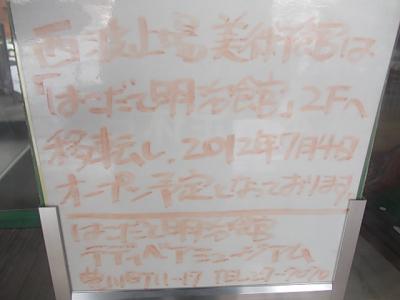 西波止場美術館は
「はこだて明治館」2Fへ
移転し、2012年7月4日
オープン予定となっております。
はこだて明治館
テディベアミュージアム
豊川町11-17 TEL27-7070